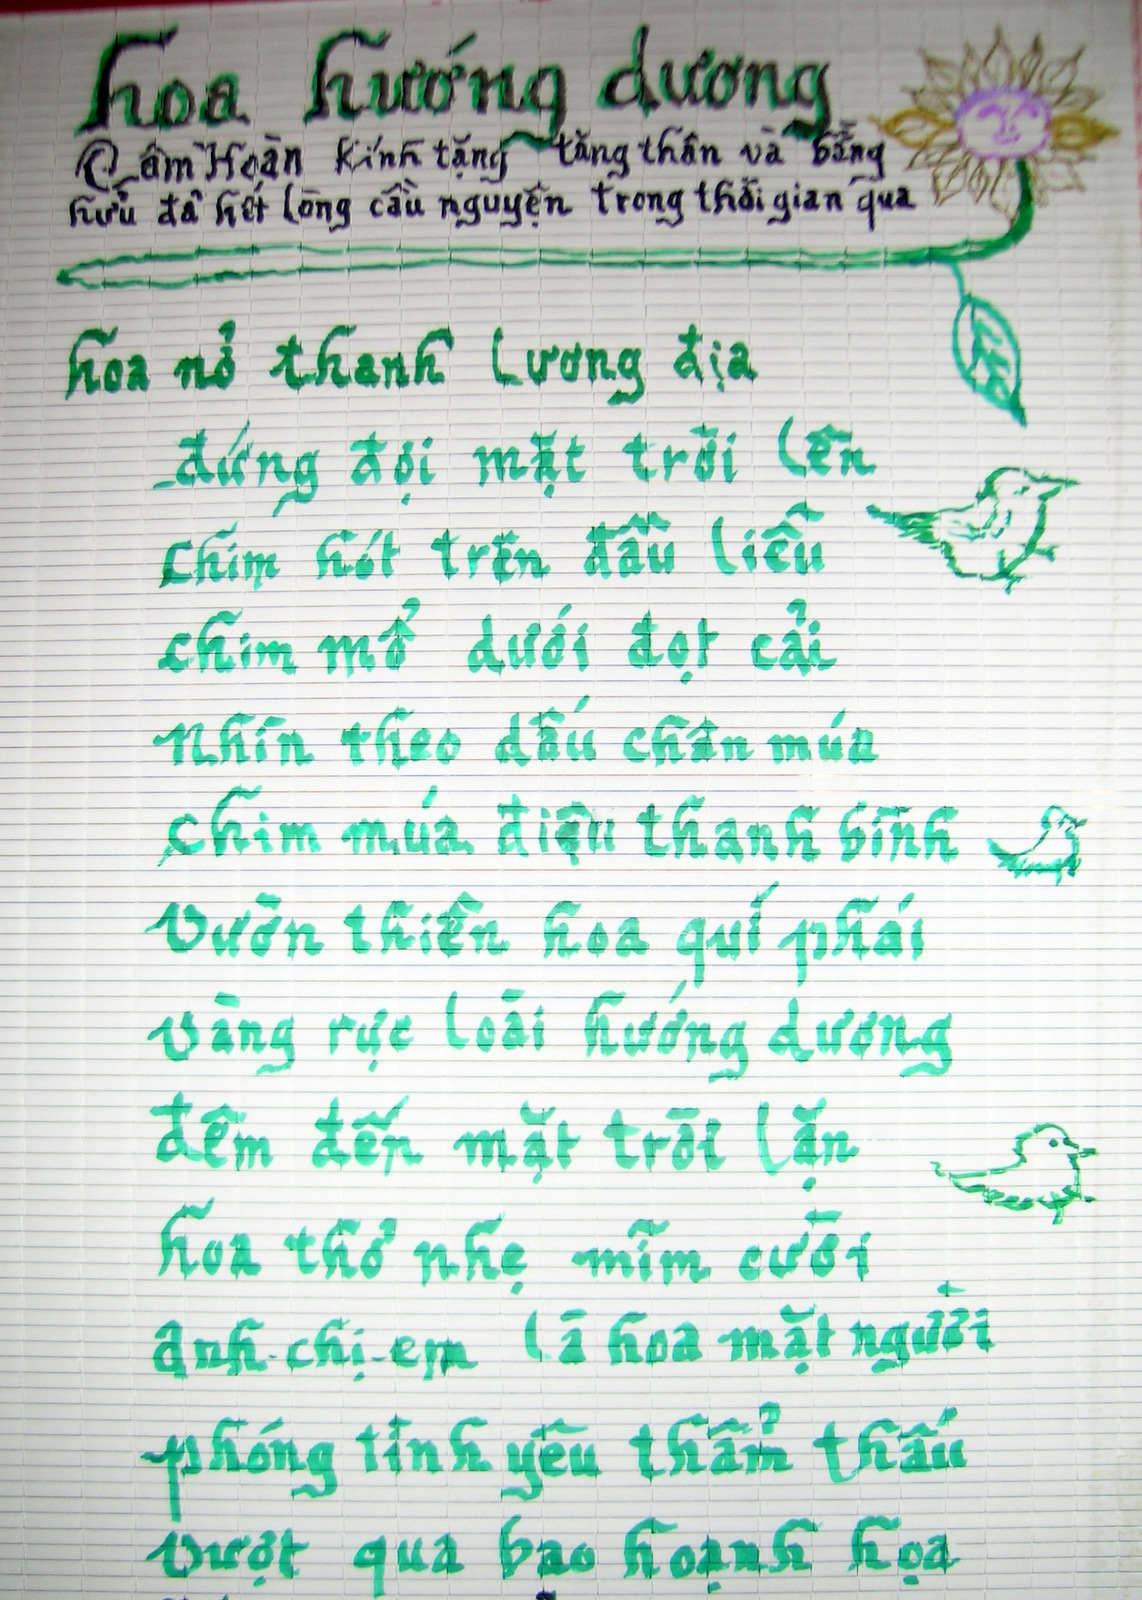 hoa hướng dương
Tâm Hoàn kính tặng tăng thân và bằng
hữu đã hết lòng cầu nguyện trong thời gian qua
hoa nở thanh lương địa
đứng đợi mặt trời lên
chim hót trên đầu liễu
chim mổ dưới đọt cải
Nhìn theo dấu chân múa
chim múa điệu thanh bình
Vườn thiền hoa quí phái
vàng rực loài hướng dương
đêm đến mặt trời lặn
hoa thở nhẹ mỉm cười
anh-chị-em là hoa mặt người
phóng tình yêu thẩm thấu
vượt qua bao hoạnh họa